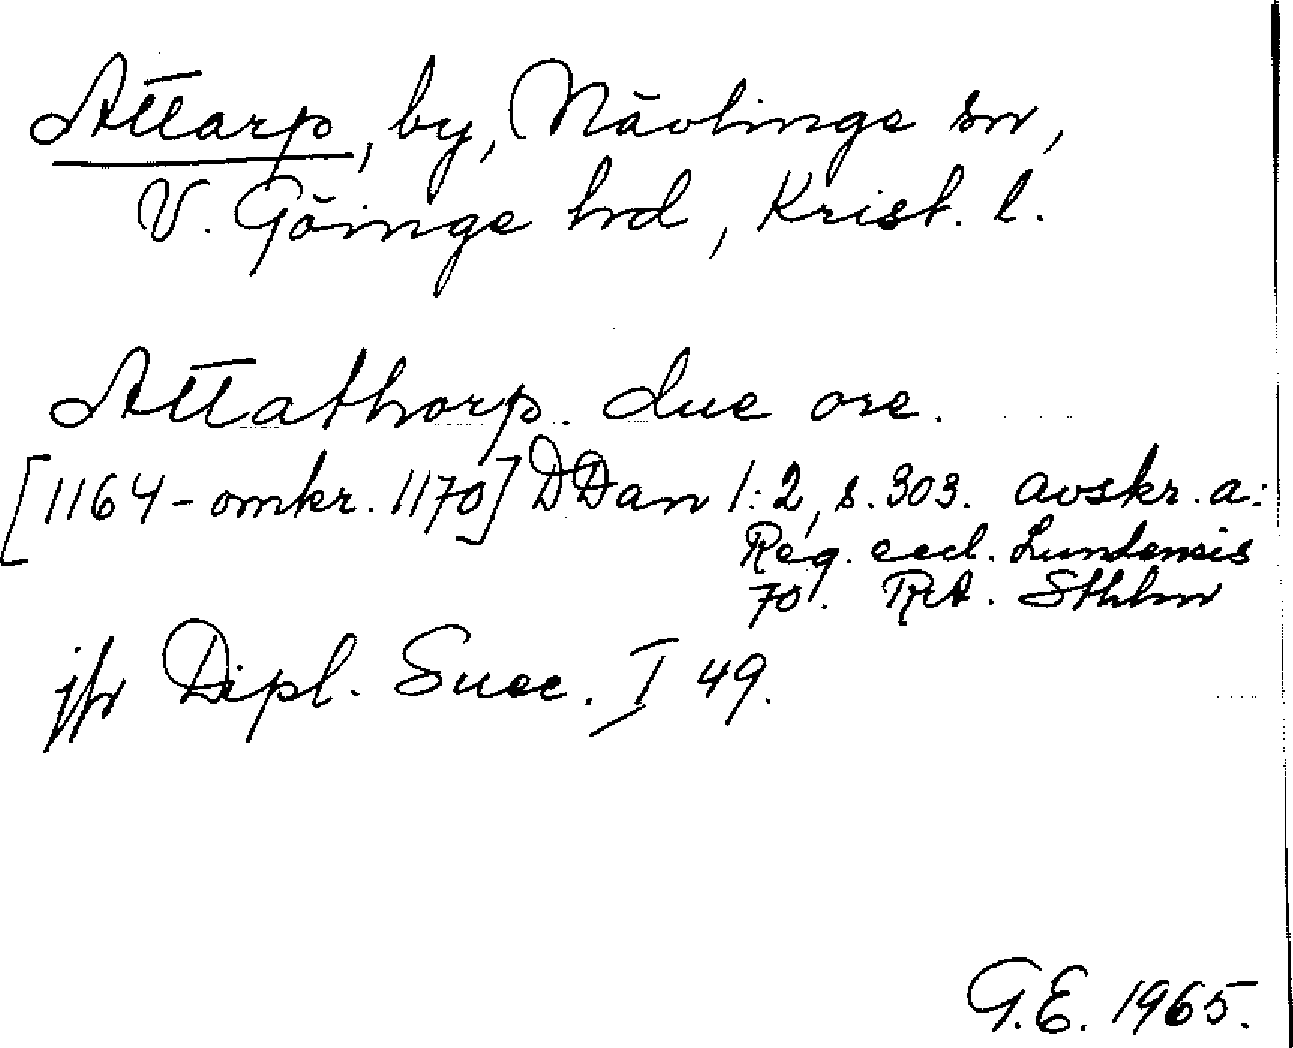 Attarp, by, Nävlinge sn,
V. Göinge hd, Krist. l.
Attathorp. due ore.
[1164-omkr. 1170] DDan 1:2, s. 303. avskr. a:
Reg. eccl. Lundensis
70. RA. Sthlm
jfr Dipl. Suec. I 49.
G.E. 1965.